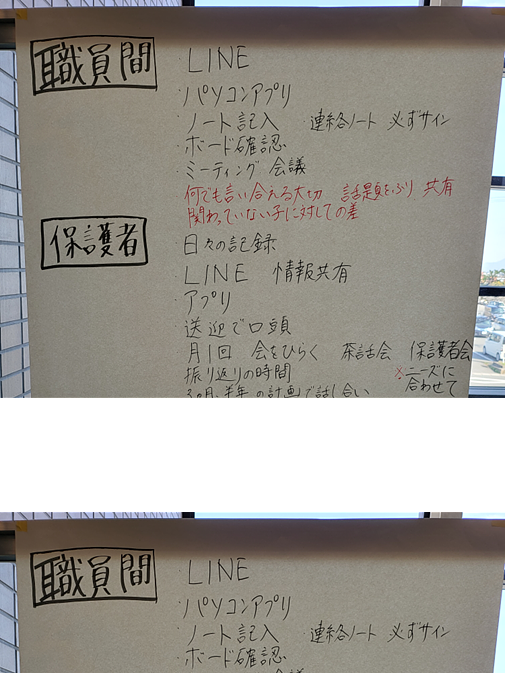 職員間
・LINE
・パソコンアプリ
・ノート記入 連絡ノート 必ずサイン
・ボード確認
・ミーティング 会議
何でも言い合える大切 話題をふり 共有
関わっていない子に対しての差
保護者
・日々の記録
・LINE 情報共有
・アプリ
・送迎で口頭
・月1回 会をひらく 茶話会 保護者会
振り返りの時間 ※ニーズに
合わせて
3ヶ月、半年の計画で話し合い
職員間
・LINE
・パソコンアプリ
・ノート記入 連絡ノート 必ずサイン
・ボード確認